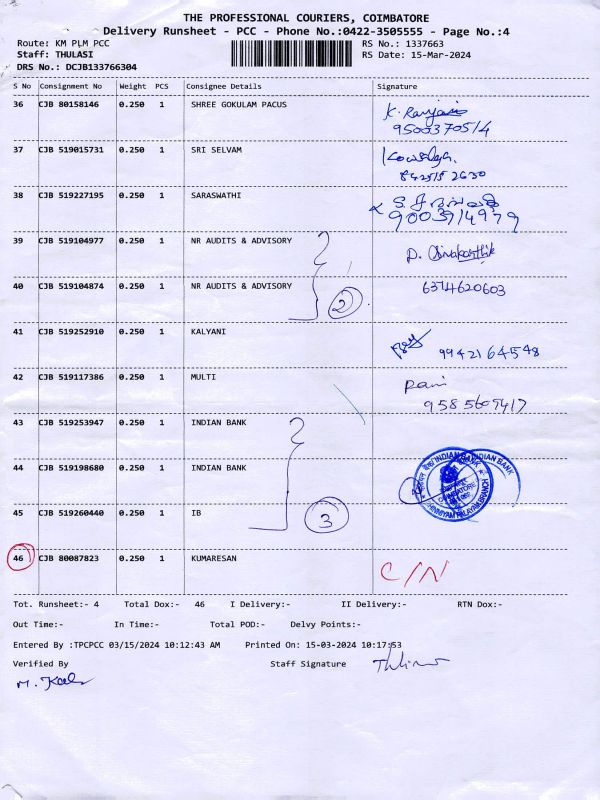 THE PROFESSIONAL COURIERS, COIMBATORE
Delivery Runsheet - PCC - Phone No.:0422-3505555 - Page No.:4
Route: KM PLM PCC RS No.: 1337663
Staff: THULASI RS Date: 15-Mar-2024
DRS No.: DCJB133766304
S No Consignment No Weight PCS Consignee Details Signature
36 CJB 80158146 0.250 1 SHREE GOKULAM PACUS K. Ranjani
9500370514
37 CJB 519015731 0.250 1 SRI SELVAM Kowsalya.
38 CJB 519227195 0.250 1 SARASWATHI
9003914979
39 CJB 519104977 0.250 1 NR AUDITS & ADVISORY D. Sivakarthik
40 CJB 519104874 0.250 1 NR AUDITS & ADVISORY 2 6374620603
41 CJB 519252910 0.250 1 KALYANI 9942164548
42 CJB 519117386 0.250 1 MULTI Rani
9585609417
43 CJB 519253947 0.250 1 INDIAN BANK
44 CJB 519198680 0.250 1 INDIAN BANK INDIAN BANK INDIAN BANK
COIMBATORE
45 CJB 519260440 0.250 1 IB 3
46 CJB 80087823 0.250 1 KUMARESAN C/N
Tot. Runsheet:- 4 Total Dox:- 46 I Delivery:- II Delivery:- RTN Dox:-
Out Time:- In Time:- Total POD:- Delvy Points:-
Entered By :TPCPCC 03/15/2024 10:12:43 AM Printed On: 15-03-2024 10:17:53
Verified By Staff Signature